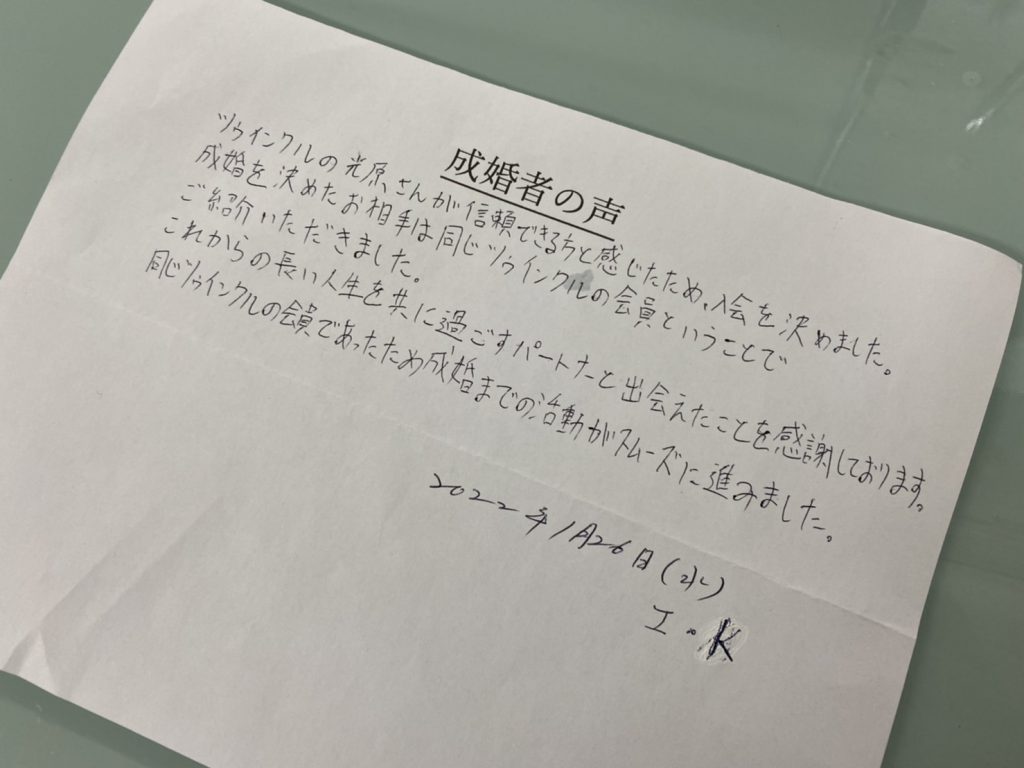 成婚者の声
ツゥインクルの光原さんが信頼できる方と感じたため、入会を決めました。
成婚を決めたお相手は同じツゥインクルの会員ということで
ご紹介いただきました。
これからの長い人生を共に過ごすパートナーと出会えたことを感謝しております。
同じツゥインクルの会員であったため成婚までの活動がスムーズに進みました。
2022年1月26日(水)
I.K